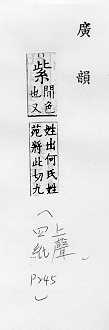 廣韻
紫
間色
也又
姓出何氏姓
苑將此切九
︵
上聲
四紙
P245
︶